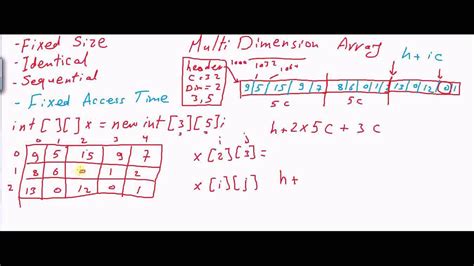 - Fixed Size
- Identical
- Sequential
- Fixed Access Time
Multi Dimension Array
header
C = 32
Dim = 2
3,5
1000 1032 1064
h + i c
9 5 15 9 7 8 6 0 1 2 13 0 12 0 1
5 c 5 c
int [ ] [ ] x = new int [3] [5];
h + 2 x 5 c + 3 c
0 1 2 3 4
0 9 5 15 9 7
1 8 6 0 1 2
2 13 0 12 0 1
i j
x [2] [3] =
x [i] [j] h +